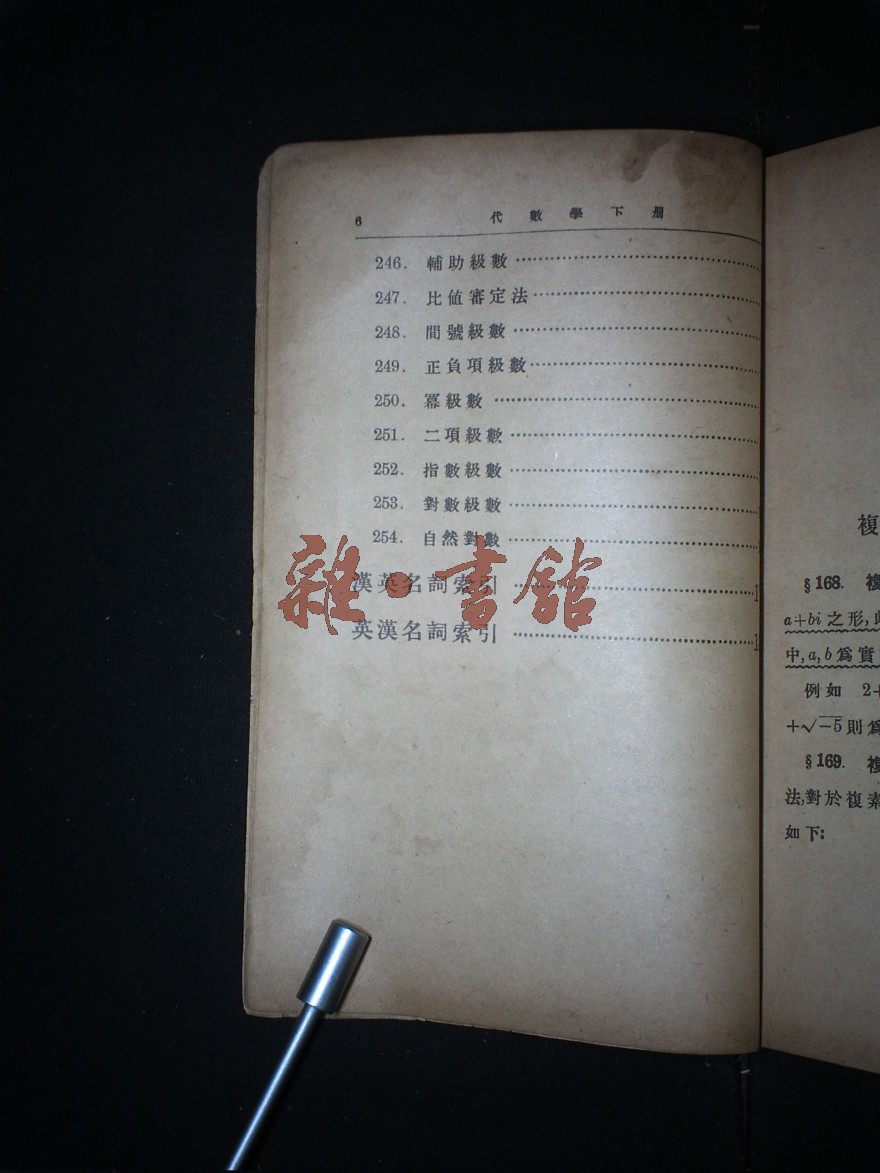 6 代數學下冊
246. 輔助級數
247. 比值審定法
248. 間號級數
249. 正負項級數
250. 冪級數
251. 二項級數
252. 指數級數
253. 對數級數
254. 自然對數
漢英名詞索引 1
英漢名詞索引 1
雜·書館
複
§168. 複
a+bi 之形,
中,a,b爲實
例如 2+
+√−5則爲
§169. 複
法,對於複素
如下: